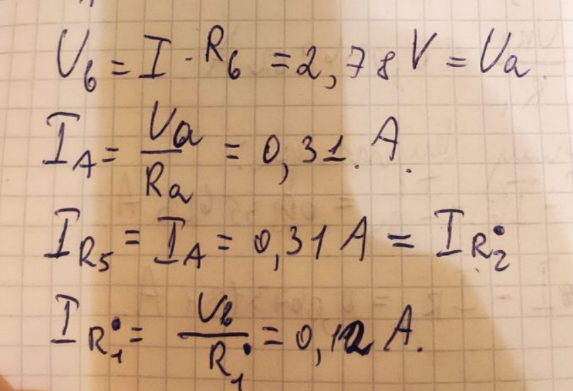 U₆ = I · R₆ = 2,78 V = Uₐ.
I_A = Uₐ / Rₐ = 0,31 A.
I_R₅ = I_A = 0,31 A = I_R₂°
I_R₁° = U₆ / R₁° = 0,12 A.